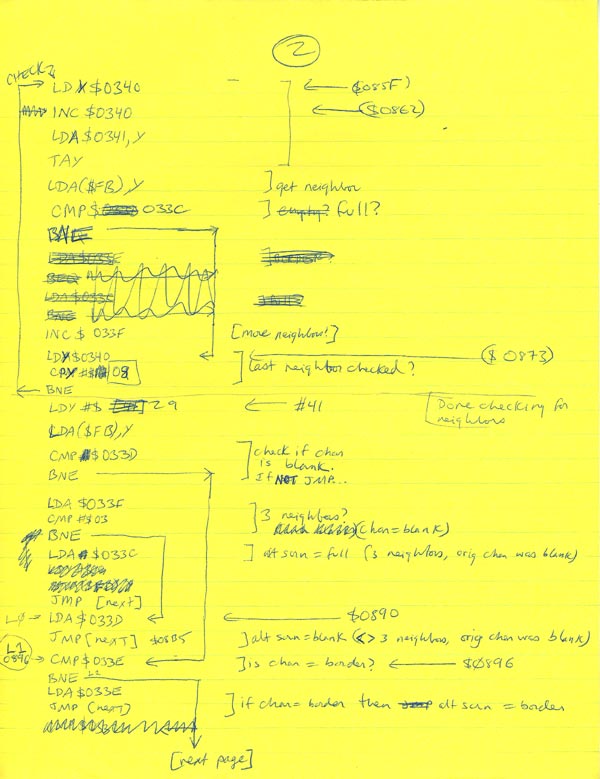 2
CHECK2
LDY $0340 ← $085F
INC $0340 ← $0862
LDA $0341,Y
TAY
LDA($FB),Y ] get neighbor
CMP $ 033C ] empty? full?
BNE
LDA $033E
BEQ
LDA $033C
BNE
INC $ 033F [more neighbors!]
LDY $0340 ← $0873
CPY #$ 09 ] last neighbor checked?
BNE
LDY #$ 29 ← #41 Done checking for neighbors
LDA($FB),Y
CMP $033D ] check if char
is blank.
BNE If NOT JMP...
LDA $033F ] 3 neighbors?
CMP #$03 (char=blank)
BNE
LDA $033C ] alt scrn = full (3 neighbors, orig char was blank)
JMP [next]
LØ → LDA $033D ← $0890
JMP [next] $08B5 ] alt scrn=blank (<> 3 neighbors, orig char was blank)
L1 0896 → CMP $033E ] is char = border? ← $0896
BNE L2
LDA $033E ] if char= border then alt scrn = border
JMP [next]
[next page]